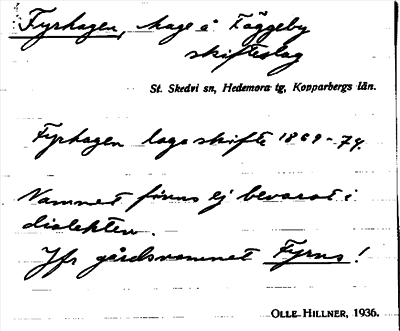 Fyrhagen, hage å Fäggeby
skifteslag
St. Skedvi sn, Hedemora tg, Kopparbergs län.
Fyrhagen laga skifte 1869-74.
Namnet finns ej bevarat i
dialekten.
Jfr gårdsnamnet Fyrns!
OLLE HILLNER, 1936.